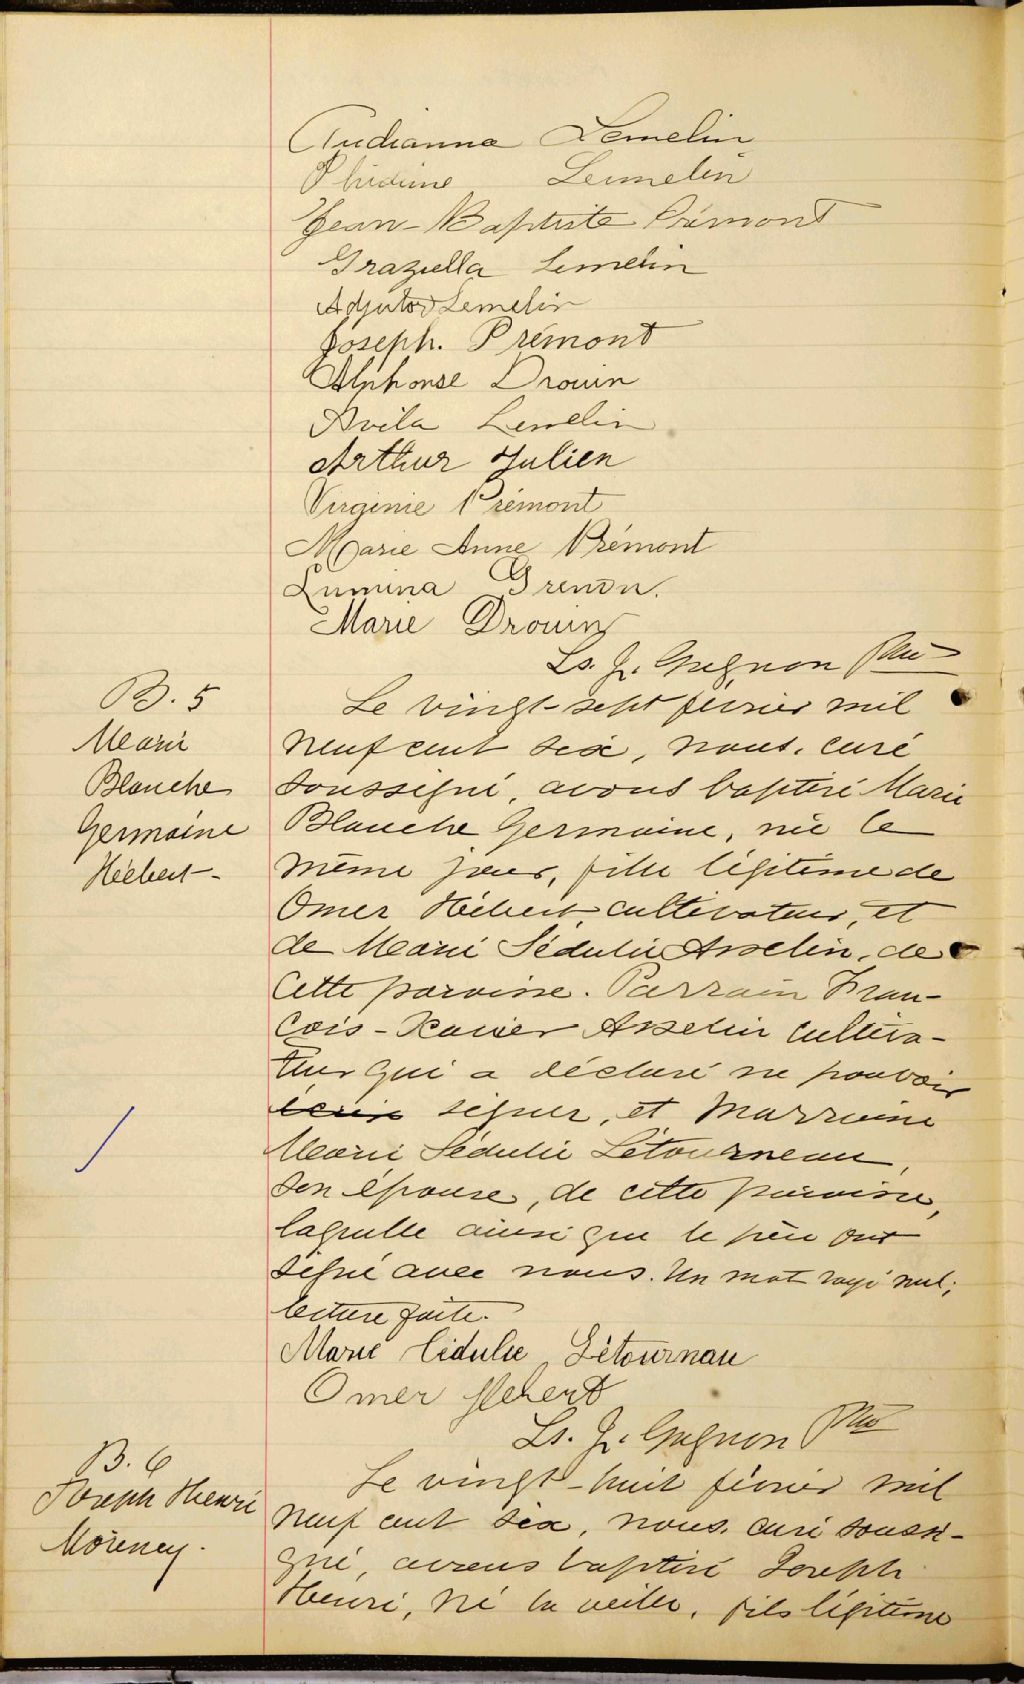 Audianna Lemelin
Phidime Lemelin
Jean-Baptiste Prémont
Graziella Lemelin
Adjutor Lemelin
Joseph. Prémont
Alphonse Drouin
Avila Lemelin
Arthur Julien
Virginie Prémont
Marie Anne Prémont
Lumina Grenon.
Marie Drouin
Ls. J. Gagnon Ptre
B. 5
Marie
Blanche
Germaine
Hébert-
Le vingt-sept février mil
neuf cent six, nous, curé
soussigné, avons baptisé Marie
Blanche Germaine, née le
même jour, fille légitime de
Omer Hébert, cultivateur, et
de Marie Sédulie Asselin, de
cette paroisse. Parrain Fran-
çois-Xavier Asselin cultiva-
teur qui a déclaré ne pouvoir
écrire signer, et Marraine
Marie Sédulie Létourneau,
son épouse, de cette paroisse,
laquelle ainsi que le père ont
signé avec nous. Un mot rayé nul;
lecture faite.
Marie Cédulie Létournau
Omer Hebert
Ls. J. Gagnon Ptre
B. 6
Joseph Henri
Morency.
Le vingt-huit février mil
neuf cent six, nous, curé soussi-
gné, avons baptisé Joseph
Henri, né la veille, fils légitime